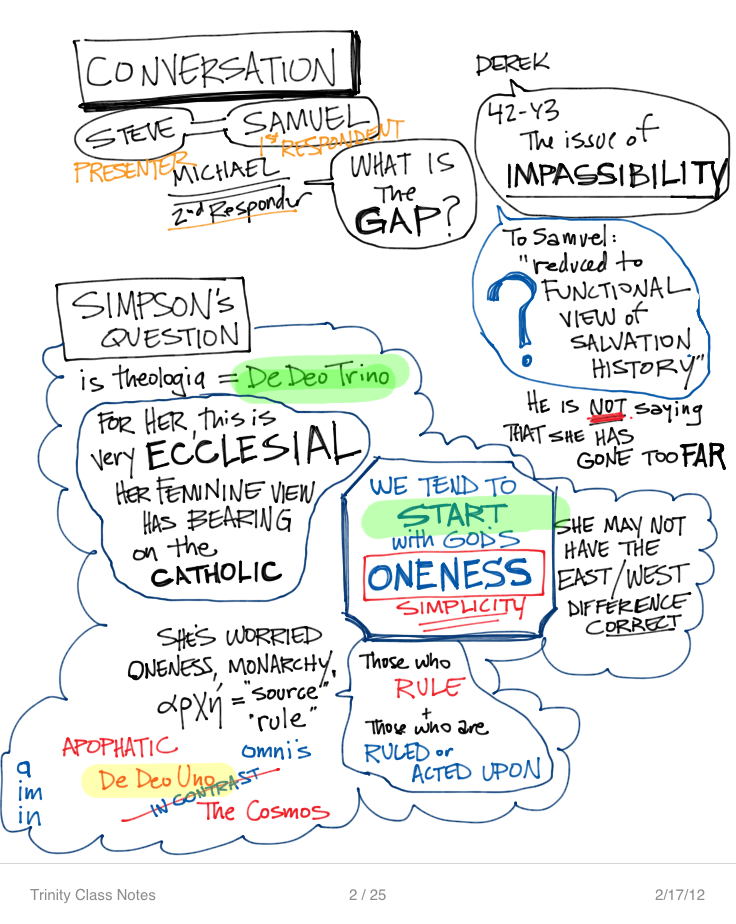 CONVERSATION
STEVE
SAMUEL
PRESENTER
1st RESPONDENT
MICHAEL
2nd Responder
WHAT IS
The
GAP?
DEREK
42-43
The issue of
IMPASSIBILITY
To Samuel:
"reduced to
FUNCTIONAL
VIEW of
SALVATION
HISTORY"
?
HE IS NOT saying
THAT SHE HAS
GONE TOO FAR
SIMPSON'S
QUESTION
is theologia = De Deo Trino
FOR HER, this is
very ECCLESIAL
HER FEMININE VIEW
HAS BEARING
on the
CATHOLIC
WE TEND TO
START
with GOD'S
ONENESS
SIMPLICITY
SHE MAY NOT
HAVE THE
EAST/WEST
DIFFERENCE
CORRECT
SHE'S WORRIED
ONENESS, MONARCHY,
αρχή = "source"
"rule"
Those who
RULE
+
Those who are
RULED or
ACTED UPON
APOPHATIC
omnis
a
im
in
De Deo Uno
IN CONTRAST
The Cosmos
Trinity Class Notes
2 / 25
2/17/12